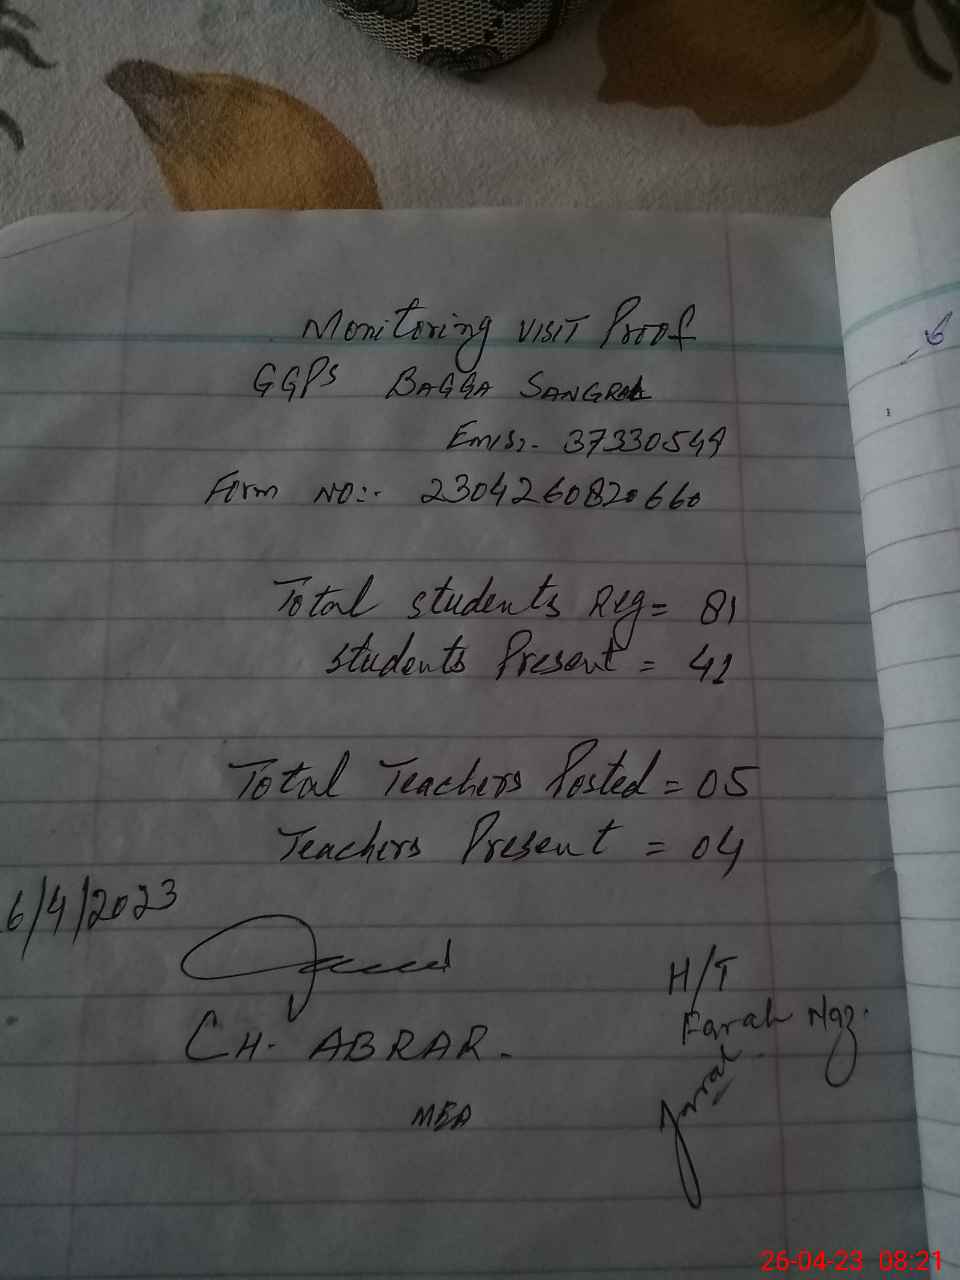 Monitoring VISIT Proof
GGPS BAGGA SANGRAL
Emis:- 37330549
Form NO:- 2304260820660
Total students Reg = 81
students Present = 41
Total Teachers Posted = 05
Teachers Present = 04
6/4/2023
CH. ABRAR.
MEA
H/T
Farah Naz.
Farah
6
26-04-23 08:21